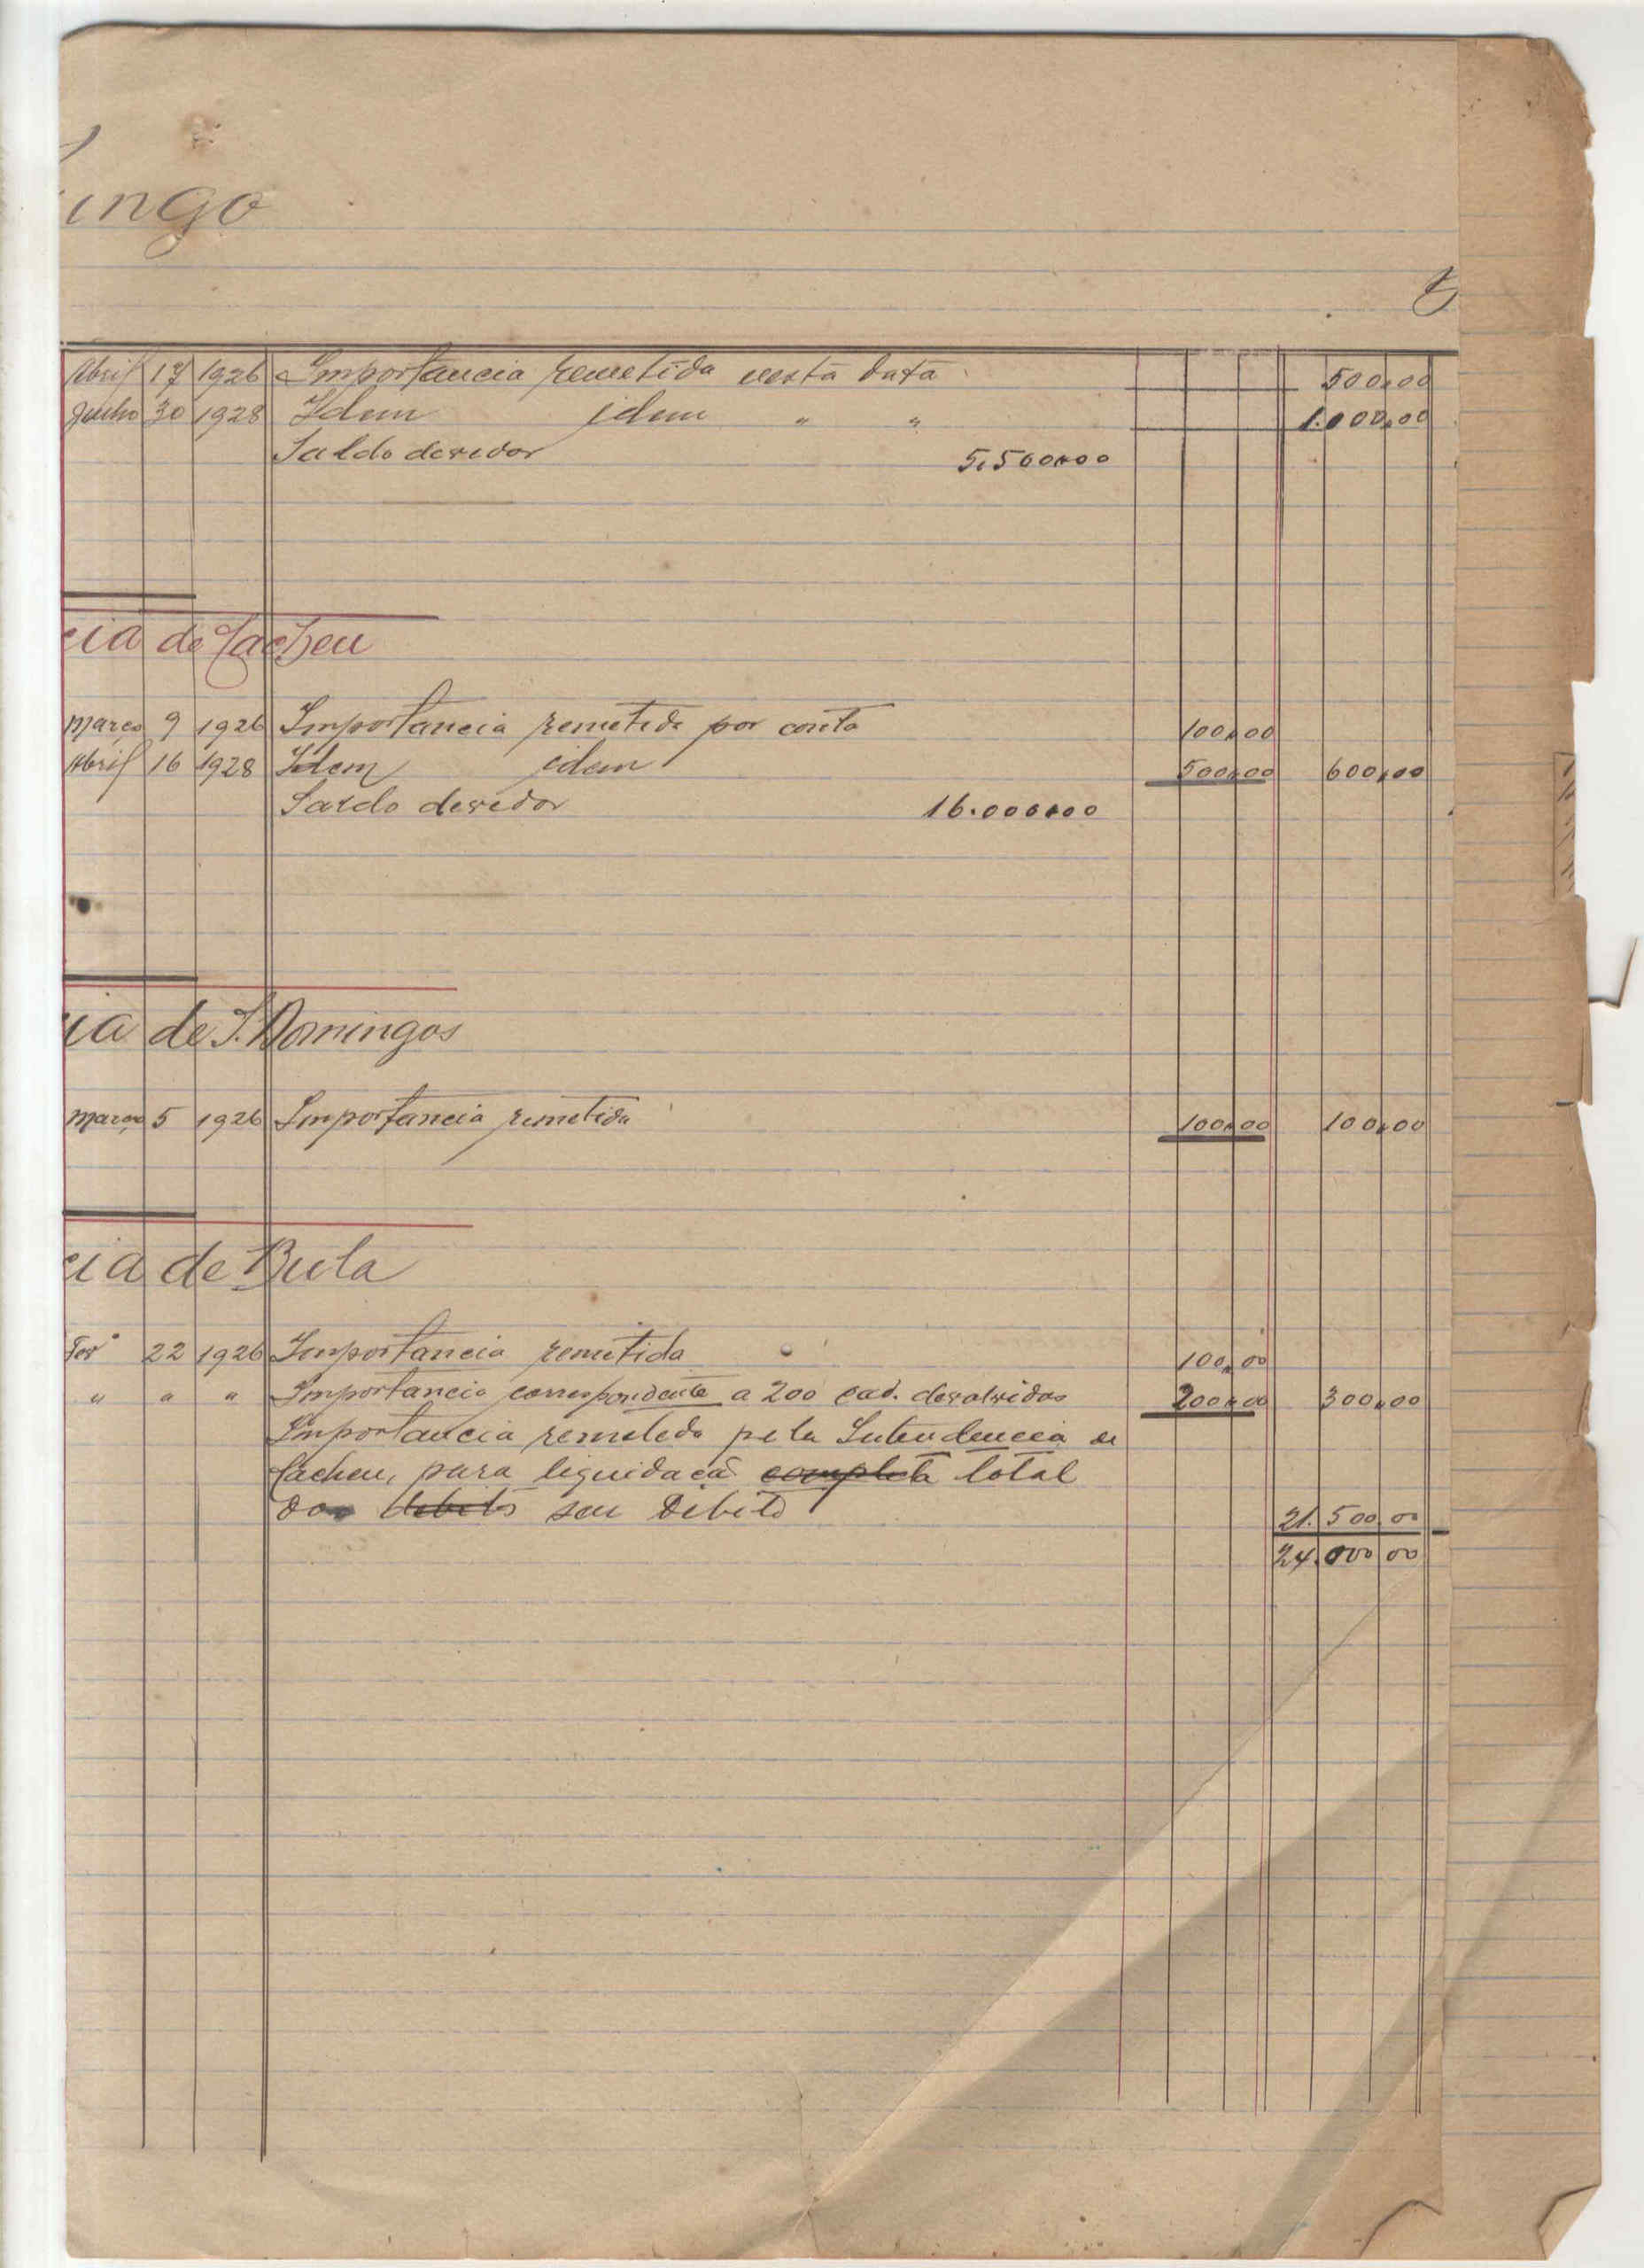 ungo
Abril 17 1926 Importancia remetida nesta data 500,00
Junho 30 1928 Idem idem " " 1.000,00
Saldo devedor 5.500,00
cia de Cacheu
Março 9 1926 Importancia remetida por conta 100,00
Abril 16 1928 Idem idem 500,00 600,00
Saldo devedor 16.000,00
cia de S. Domingos
Março 5 1926 Importancia remetida 100,00 100,00
cia de Bula
Fevº 22 1926 Importancia remetida 100,00
" " " Importancia correspondente a 200 cad. devolvidas 200,00 300,00
Importancia remetida pela Intendencia de
Cacheu, para liquidacã completa total
do debito seu debito 21.500,00
24.000,00